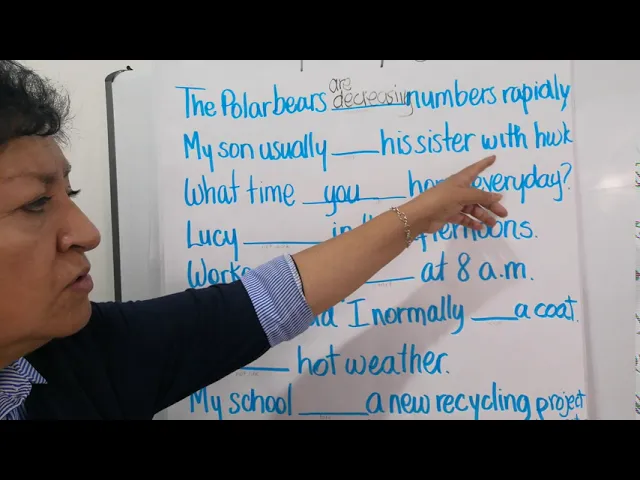 The Polar bears are decreasing numbers rapidly
My son usually ____ his sister with hwk
What time __you____ everyday?
Lucy ________ in
____ at 8 a.m.
I normally ____ a coat.
____ hot weather.
My school ______ a new recycling project